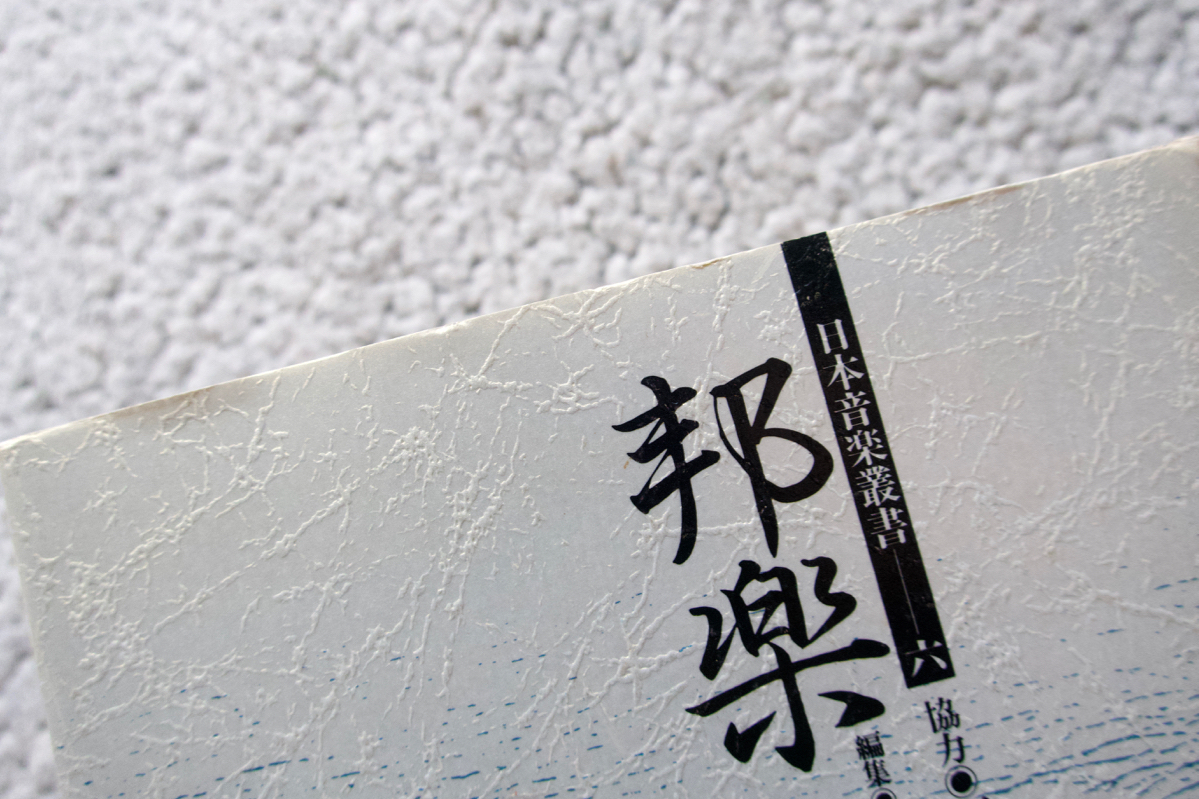 日本音楽叢書——六
邦楽
協力●
編集●